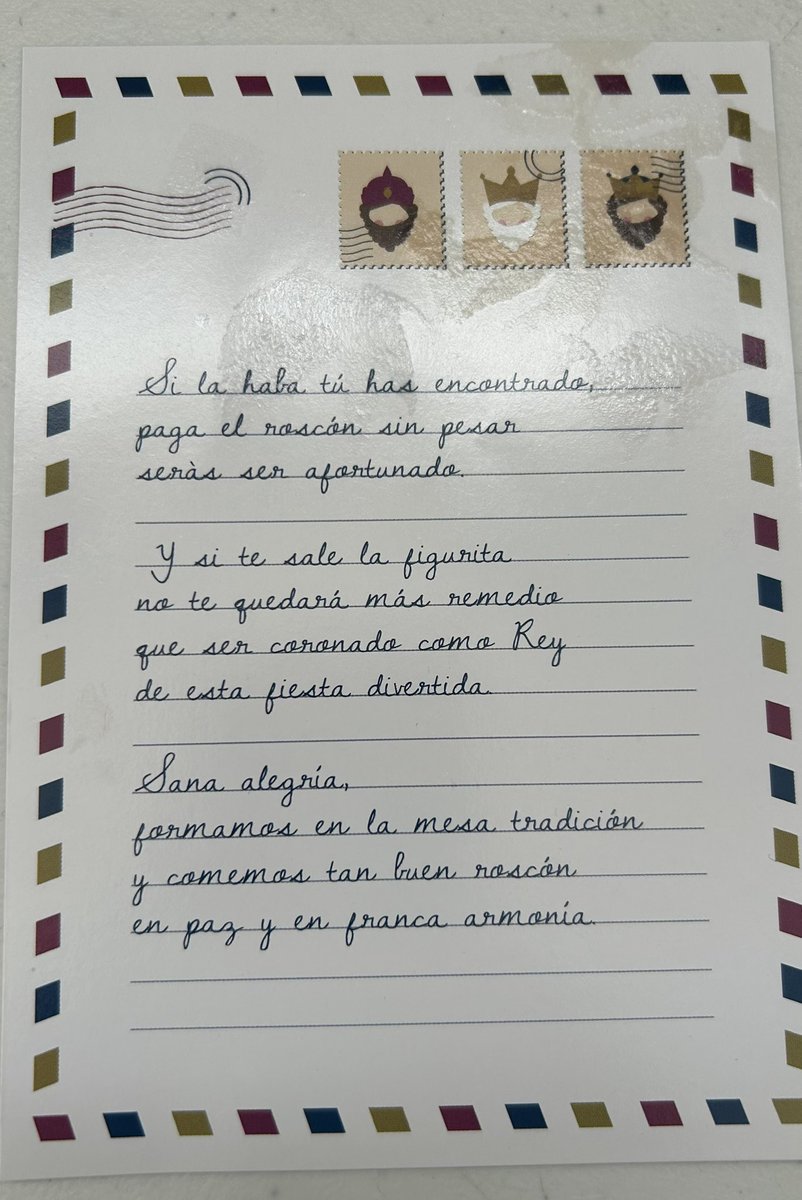 Si la haba tú has encontrado,
paga el roscón sin pesar
seràs ser afortunado.
Y si te sale la figurita
no te quedará más remedio
que ser coronado como Rey
de esta fiesta divertida.
Sana alegría,
formamos en la mesa tradición
y comemos tan buen roscón
en paz y en franca armonía.